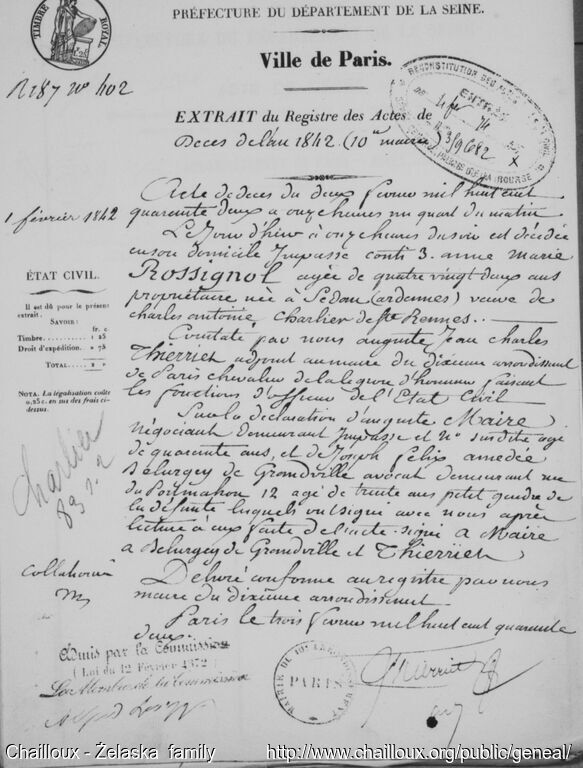 TIMBRE ROYAL
PRÉFECTURE DU DÉPARTEMENT DE LA SEINE.
Ville de Paris.
R 187 nº 402
EXTRAIT du Registre des Actes de
Deces de l'an 1842 (10e mairie)
RECONSTITUTION DES ACTES
PALAIS DE LA BOURSE
Acte de deces du deux fevrier mil huit cent
quarante deux a onze heures un quart du matin
1 février 1842
Le Jour d'hier à onze heures du soir est décédée
en son domicile Impasse conti 3. anne Marie
Rossignol agée de quatre vingt deux ans
propriétaire née à Sedan (ardennes) veuve de
charles antoine charlier de Ste Rennes.
ÉTAT CIVIL.
Il est dû pour le présent
extrait.
SAVOIR:
fr. c
Timbre. 1 25
Droit d'expédition. » 75
TOTAL. 2 »
NOTA. La légalisation coûte
0,25 c. en sus des frais ci-
dessus.
Constaté par nous auguste Jean charles
Thierriet adjoint au maire du dixieme arrondissement
de Paris chevalier de la legion d'honneur faisant
les fonctions d'officier de l'Etat Civil
Sur la déclaration d'auguste Maire
négociant demeurant Impasse et Nº susdits agé
de quarante ans, et de Joseph felix amedée
Belurgey de Grandville avocat demeurant rue
du Pontmahon 12 agé de trente ans petit gendre de
la défunte lesquels ont signé avec nous après
lecture à eux faite de l'acte. signé A Maire
a Belurgey de Grandville et Thierriet
Charlier
Délivré conforme au registre par nous
maire du dixieme arrondissement.
Paris le trois fevrier mil huit cent quarante
deux.
Admis par la Commission
(Loi du 12 Février 1872)
Les Membres de la Commission
PARIS
Thierriet
Chailloux - Żelaska family
http://www.chailloux.org/public/geneal/